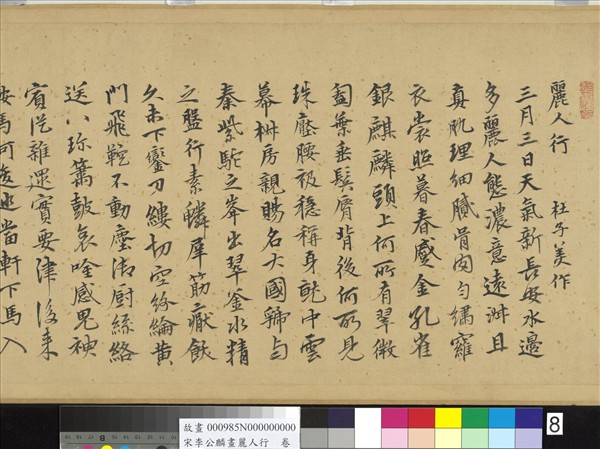 麗人行 杜子美作
三月三日天氣新長安水邊
多麗人態濃意遠淑且
真肌理細膩骨肉勻繡羅
衣裳照暮春蹙金孔雀
銀麒麟頭上何所有翠微
匎葉垂鬢脣背後何所見
珠壓腰衱穩稱身就中雲
幕椒房親賜名大國虢與
秦紫駝之峯出翠釜水精
之盤行素鱗犀筯厭飫
久未下鑾刀縷切空紛綸黃
門飛鞚不動塵御厨絲絡
送八珍簫鼓哀吟感鬼神
賓從雜遝實要津後來
鞍馬何逡巡當軒下馬入
8
故畫 000985N000000000
宋李公麟畫麗人行 卷